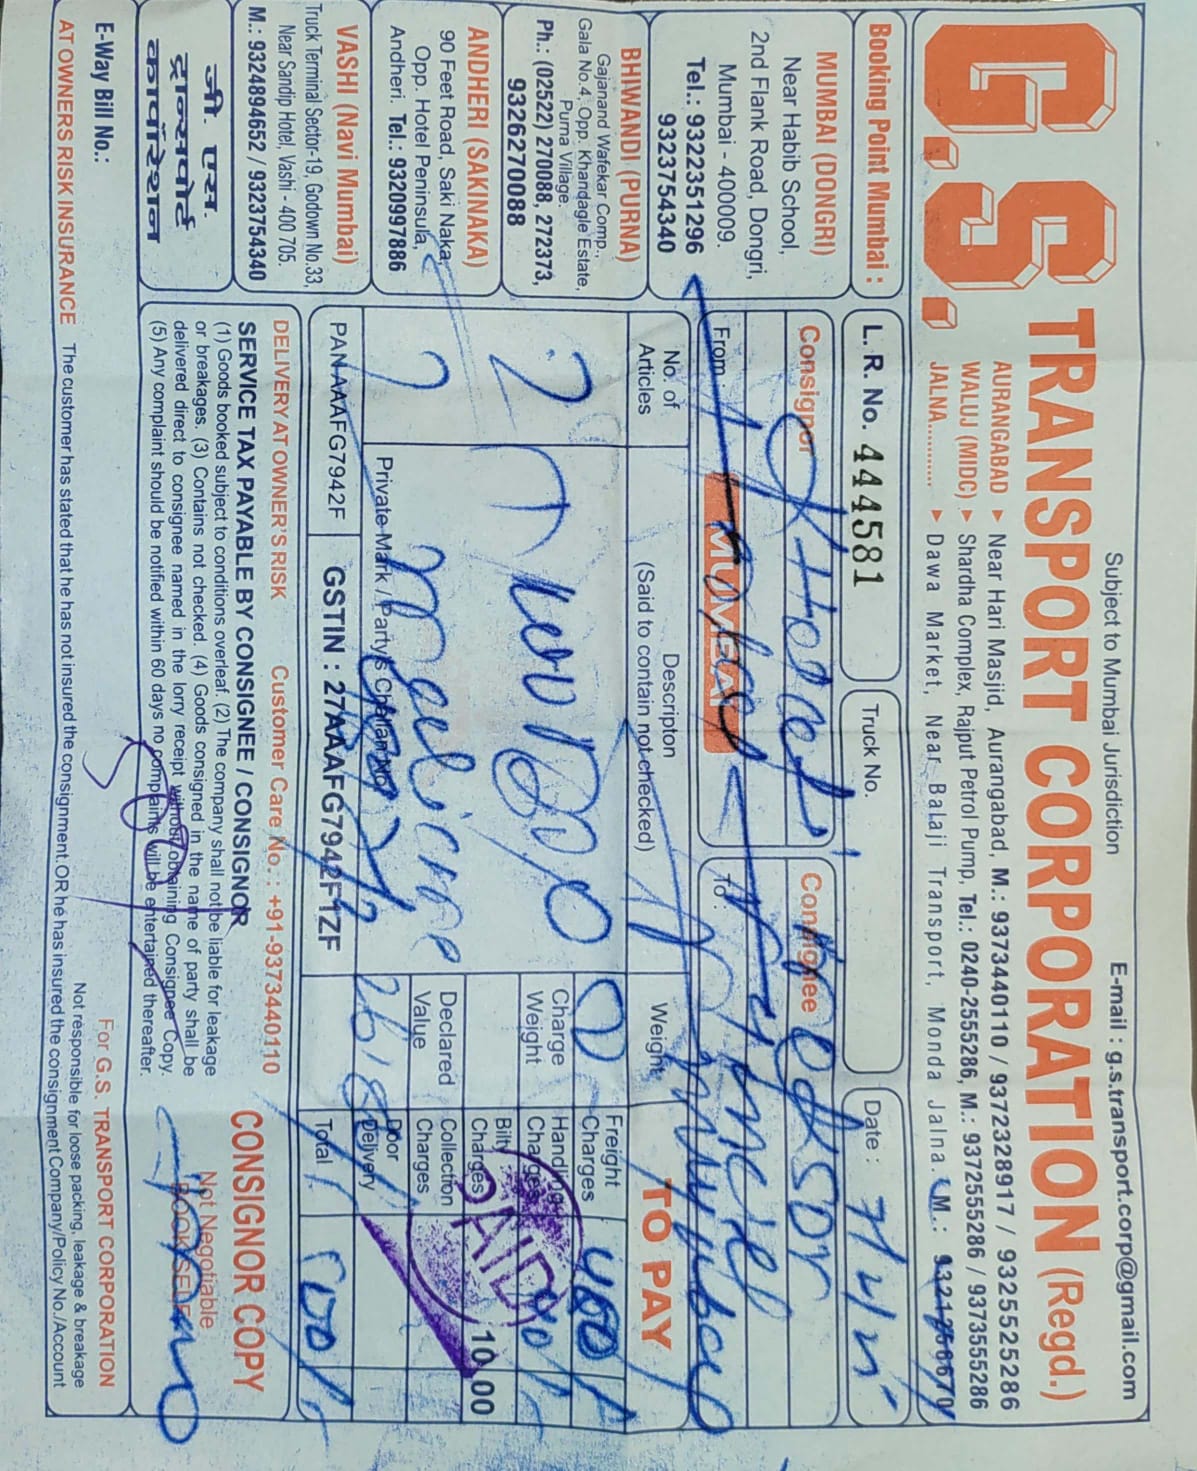 Subject to Mumbai Jurisdiction
E-mail : g.s.transport.corp@gmail.com
G.S. TRANSPORT CORPORATION (Regd.)
AURANGABAD ► Near Hari Masjid, Aurangabad, M.: 9373440110 / 9372328917 / 9325525286
WALUJ (MIDC) ► Shardha Complex, Rajput Petrol Pump, Tel.: 0240-2555286, M.: 9372555286 / 9373555286
JALNA............. ► Dawa Market, Near Balaji Transport, Monda Jalna. M.:
Booking Point Mumbai :
L. R. No. 444581
Truck No.
Date :
MUMBAI (DONGRI)
Near Habib School,
2nd Flank Road, Dongri,
Mumbai - 400009.
Tel.: 9322351296
9323754340
Consignor
Consignee
From
MUMBAI
To :
BHIWANDI (PURNA)
Gajanand Wafekar Comp.,
Gala No.4, Opp. Khandagle Estate,
Purna Village.
Ph.: (02522) 270088, 272373,
9326270088
ANDHERI (SAKINAKA)
90 Feet Road, Saki Naka,
Opp. Hotel Peninsula,
Andheri. Tel.: 9320997886
VASHI (Navi Mumbai)
Truck Terminal Sector-19, Godown No.33,
Near Sandip Hotel, Vashi - 400 705.
M.: 9324894652 / 9323754340
No. of
Articles
Descripton
(Said to contain not checked)
Weight
TO PAY
2
Charge
Weight
Declared
Value
Freight
Charges
400
Handling
Charges
Bilty
Charges
10.00
Collection
Charges
Door
Delivery
Total
PAID
Private Mark / Party's Challan No.
PAN AAAFG7942F
GSTIN : 27AAAFG7942F1ZF
DELIVERY AT OWNER'S RISK
Customer Care No. : +91-9373440110
SERVICE TAX PAYABLE BY CONSIGNEE / CONSIGNOR
(1) Goods booked subject to conditions overleaf. (2) The company shall not be liable for leakage
or breakages. (3) Contains not checked. (4) Goods consigned in the name of party shall be
delivered direct to consignee named in the lorry receipt without obtaining Consignee Copy.
(5) Any complaint should be notified within 60 days no complaints will be entertained thereafter.
CONSIGNOR COPY
Not Negotiable
जी. एस.
ट्रान्सपोर्ट
कार्पोरेशन
E-Way Bill No.:
For G.S. TRANSPORT CORPORATION
Not responsible for loose packing, leakage & breakage
AT OWNERS RISK INSURANCE The customer has stated that he has not insured the consignment OR he has insured the consignment Company/Policy No./Account